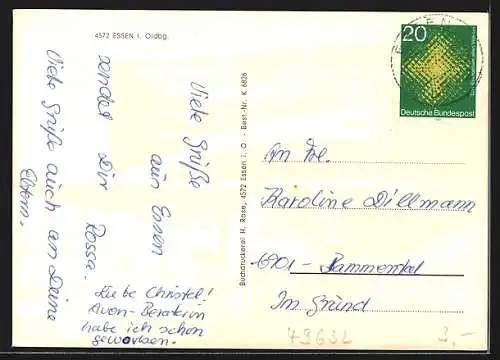 4572 ESSEN i. Oldbg.
Viele Grüße
aus Essen
sendet Dir
Rossa.
Viele Grüße auch an Deine
Eltern.
Liebe Christel!
Avon-Beraterin
habe ich schon
geworben.
Buchdruckerei H. Rose, 4572 Essen i. O - Best.-Nr. K 6826
20
Deutsche Bundespost
An Frl.
Karoline Dillmann
6901 - Bammental
Im Grund
49632
3,-